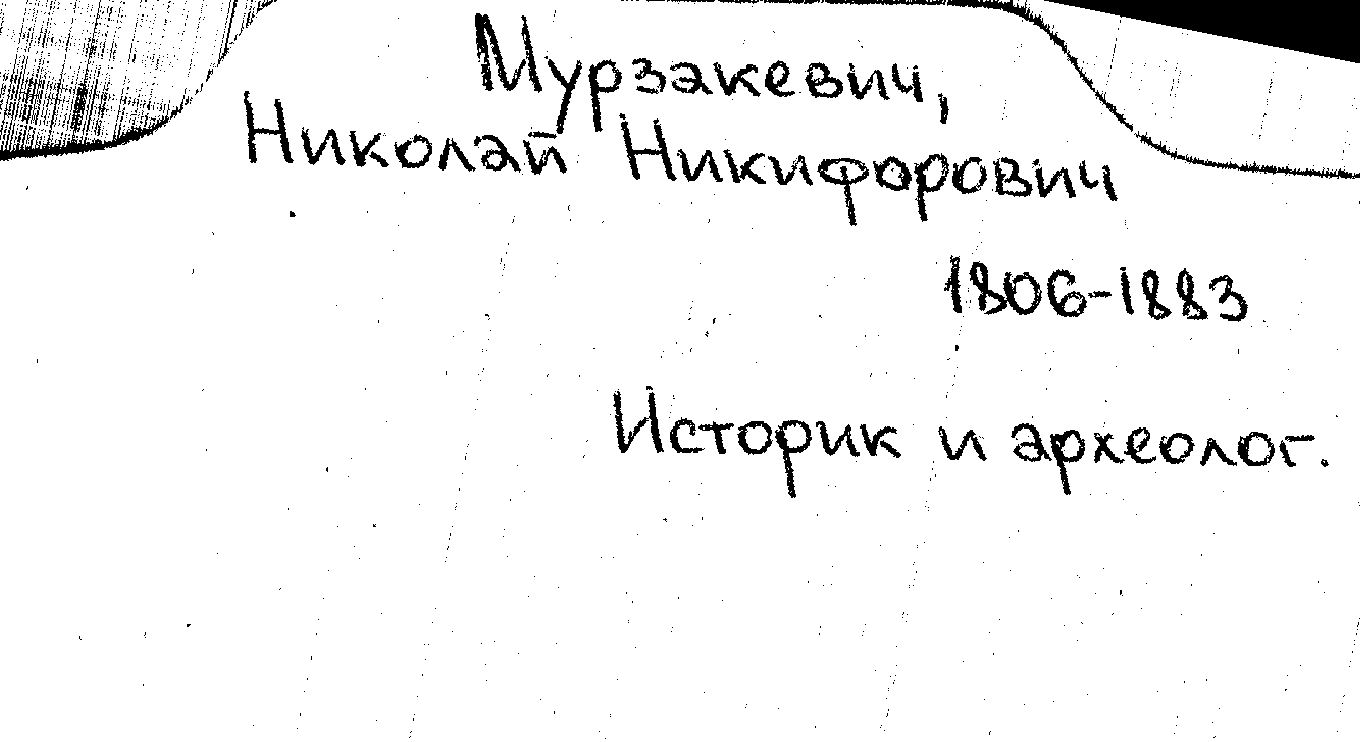 Мурзакевич,
Николай Никифорович
1806-1883
Историк и археолог.